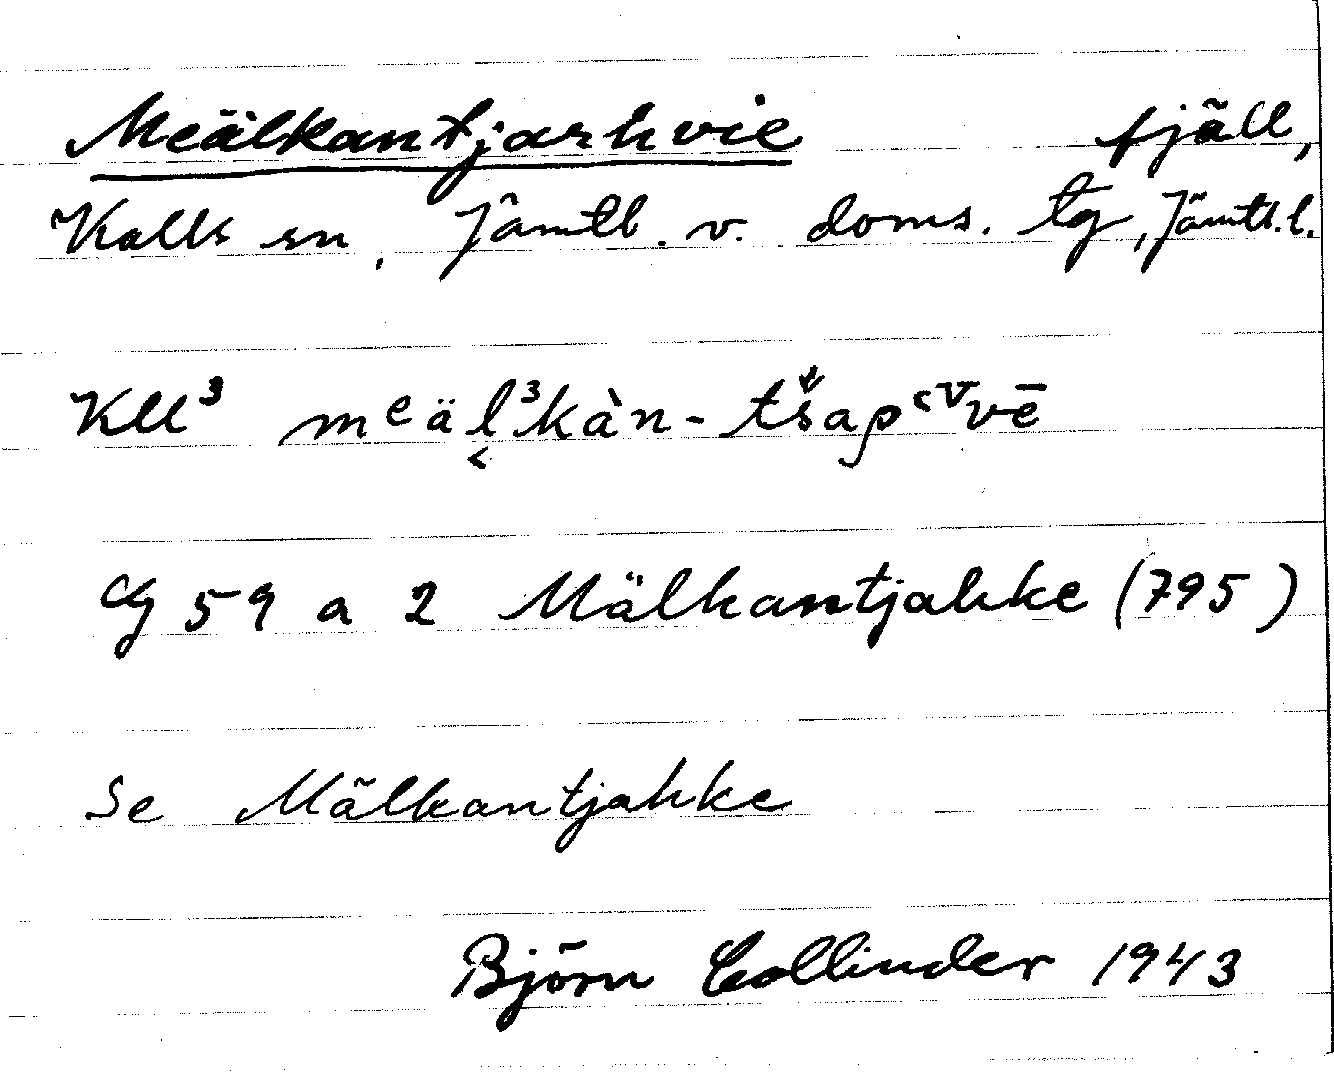 Meälkantjarhvie fjäll,
Kalls sn, Jämtl. v. doms. tg, Jämtl. l.
Kll³ mᵉäl̬³kàn-tšapʿᵛvē
G 59 a 2 Mälkantjahke (795)
Se Mälkantjahke
Björn Collinder 1943